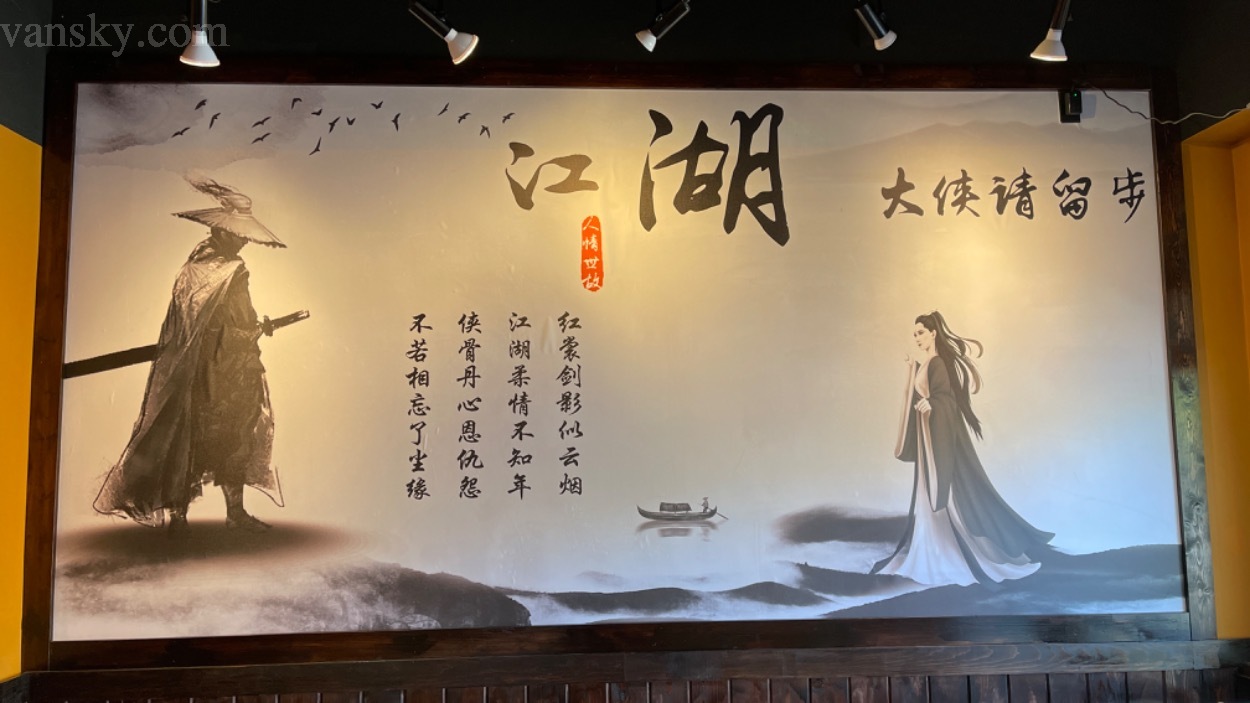 vansky.com
江湖
人情世故
大侠请留步
红裳剑影似云烟
江湖柔情不知年
侠骨丹心恩仇怨
不若相忘了尘缘